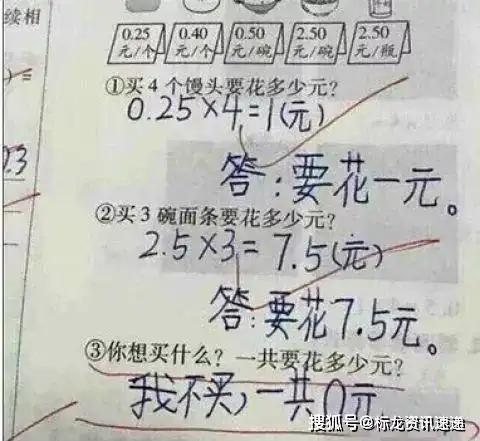 续相
0.25 元/个
0.40 元/个
0.50 元/碗
2.50 元/碗
2.50 元/瓶
①买 4 个馒头要花多少元?
0.25×4=1(元)
答:要花一元。
②买 3 碗面条要花多少元?
2.5×3=7.5(元)
答:要花7.5元。
③你想买什么? 一共要花多少元?
我不买,一共0元
搜狐号@标龙资讯速递